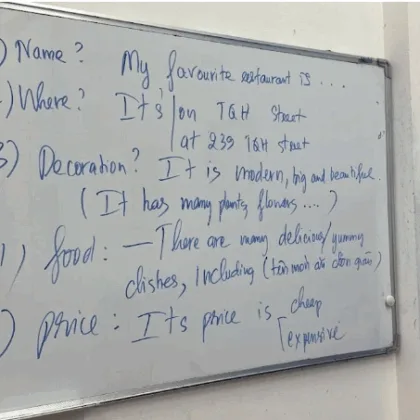 ) Name? My favourite restaurant is ...
) Where? It's on TQH street
at 239 TQH street
3) Decoration? It is modern, big and beautiful.
(It has many plants, flowers ....)
), food: – There are many delicious/yummy
dishes, including (tên món ăn của quán)
) price: Its price is cheap
expensive